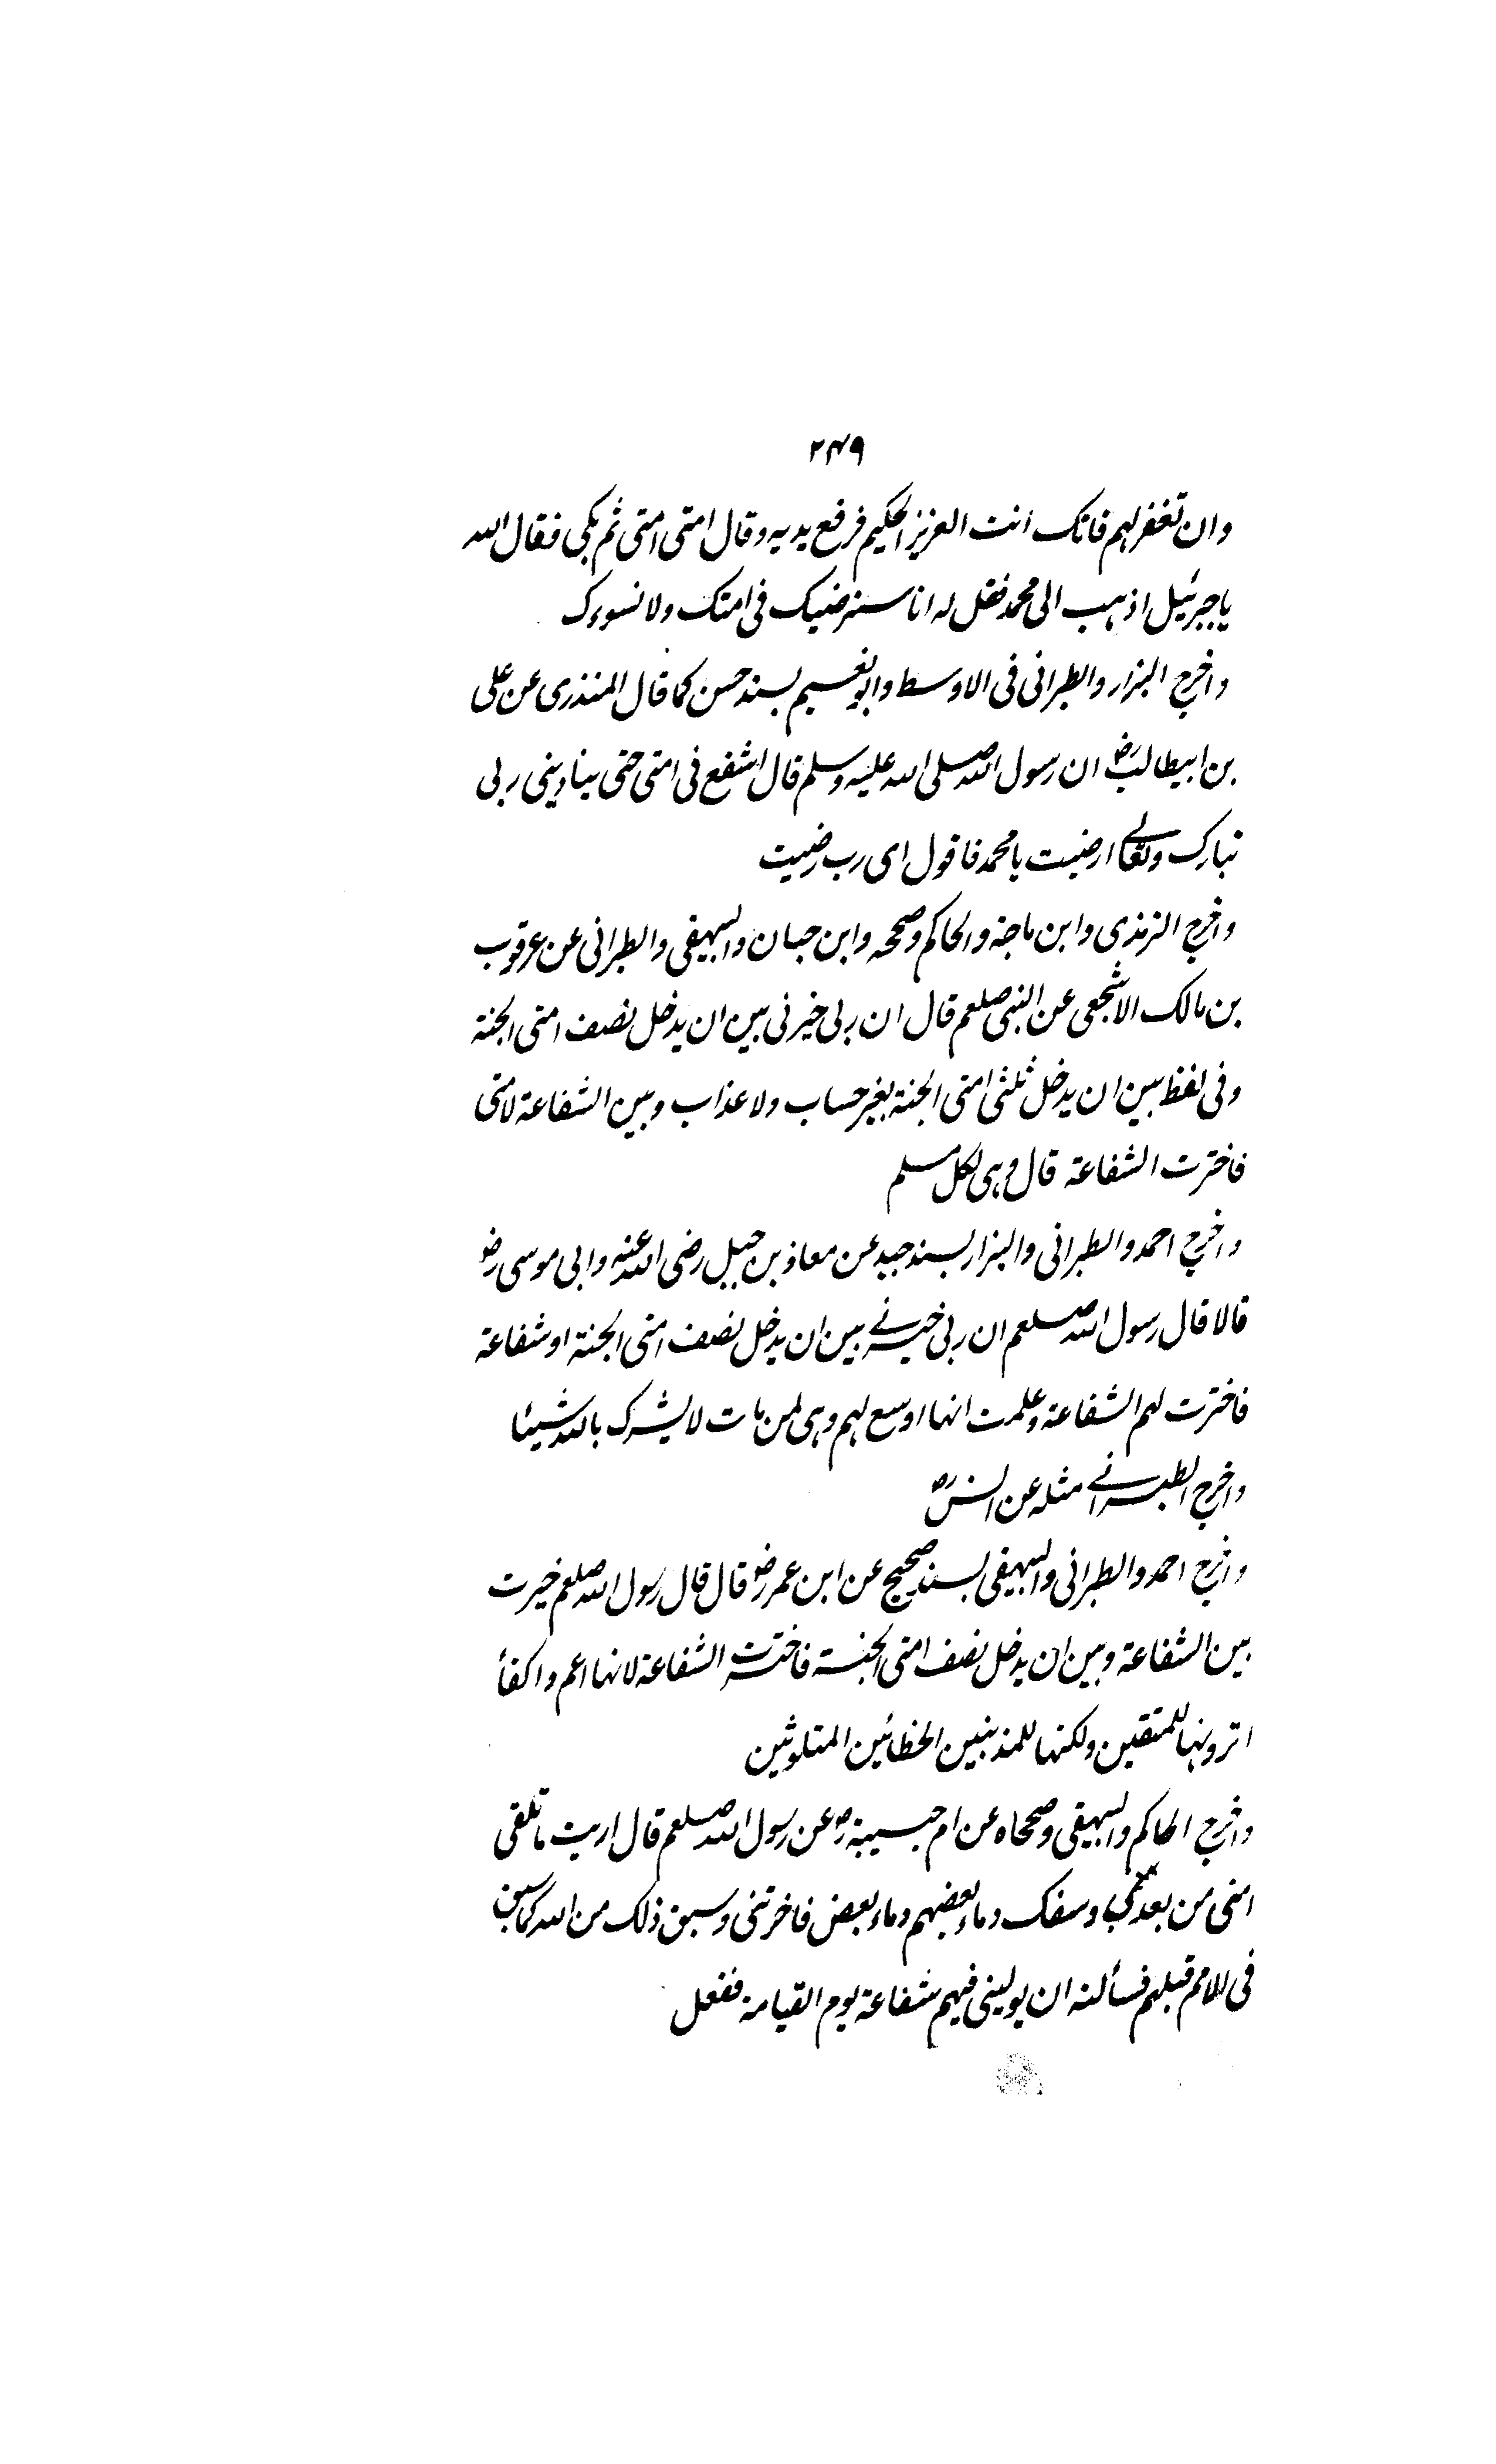 ۲۴۹
وان تغفر لہم فانک انت العزیز الحکیم فرفع یدیہ وقال امتی امتی ثم بکی فقال اللہ
یا جبرئیل اذہب الی محمد فقل لہ انا سنرضیک فی امتک ولا نسوءک
واخرج البزار والطبرانی فی الاوسط وابو نعیم بسند حسن کما قال المنذری عن علی
بن ابیطالب رض ان رسول اللہ صلی اللہ علیہ وسلم قال اشفع فی امتی حتی ینادینی ربی
تبارک وتعالے ارضیت یا محمد فاقول ای رب رضیت
واخرج الترمذی وابن ماجۃ والحاکم وصححہ وابن حبان والبیہقی والطبرانی عن عرقوب
بن مالک الاشجعی عن النبی صلعم قال ان ربی خیرنی بین ان یدخل نصف امتی الجنۃ
وفی لفظ بین ان یدخل ثلثی امتی الجنۃ بغیر حساب ولا عذاب وبین الشفاعۃ لامتی
فاخترت الشفاعۃ قال وہی لکل مسلم
واخرج احمد والطبرانی والبزار بسند جید عن معاذ بن جبل رضی اللہ عنہ وابی موسی رض
قالا قال رسول اللہ صلعم ان ربی خیرنے بین ان یدخل نصف امتی الجنۃ او شفاعۃ
فاخترت لہم الشفاعۃ وعلمت انہا اوسع لہم وہی لمن مات لا یشرک باللہ شیئا
واخرج الطبرانے مثلہ عن انس رض
واخرج احمد والطبرانی والبیہقی بسند صحیح عن ابن عمر رض قال قال رسول اللہ صلعم خیرت
بین الشفاعۃ وبین ان یدخل نصف امتی الجنۃ فاخترت الشفاعۃ لانہا اعم واکفأ
اترونہا للمتقین ولکنہا للمذنبین الخطائین المتلوثین
واخرج الحاکم والبیہقی وصححاہ عن ام حبیبۃ رض عن رسول اللہ صلعم قال اریت ما تلقی
امتی من بعدی وسفک دماء بعضہم دماء بعض فاخرتنی وسبق ذلک من اللہ کما سبق
فی الامم قبلہم فسألتہ ان یولینی فیہم شفاعۃ یوم القیامۃ ففعل